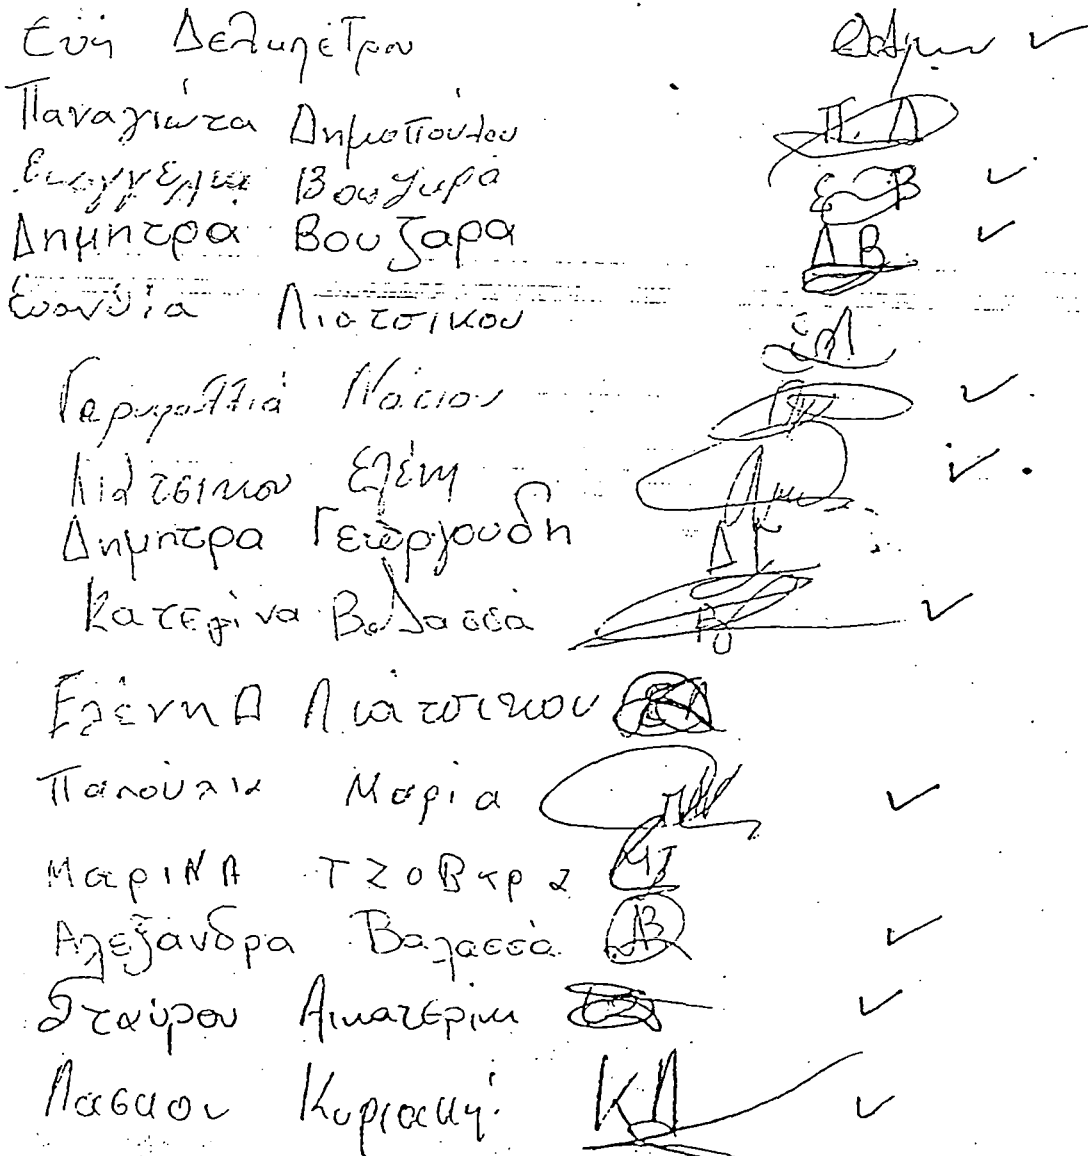 Εύη Δεληπέτρου ✓
Παναγιώτα Δημοπούλου Π. Δ
Ευαγγελία Βουζαρά Ε Β ✓
Δημητρα Βουζαρα Δ Β ✓
Λιατσικου Ε Λ
Γαρυφαλλιά Νάσιου ✓
Λιάτσικου Ελένη ✓
Δημητρα Γεωργουδη Δ Γ
Κατερίνα Βαλασσά ✓
Ελένη Δ Λιάτσικου ΕΛ
Παπούλια Μαρία ΠΜ ✓
ΜαρίΝΑ ΤΖοΒαρα ΜΤ
Αλεξάνδρα Βαλασσά ΑΒ ✓
Σταύρου Αικατερίνη ✓
Λάσκου Κυριακή ΚΛ ✓